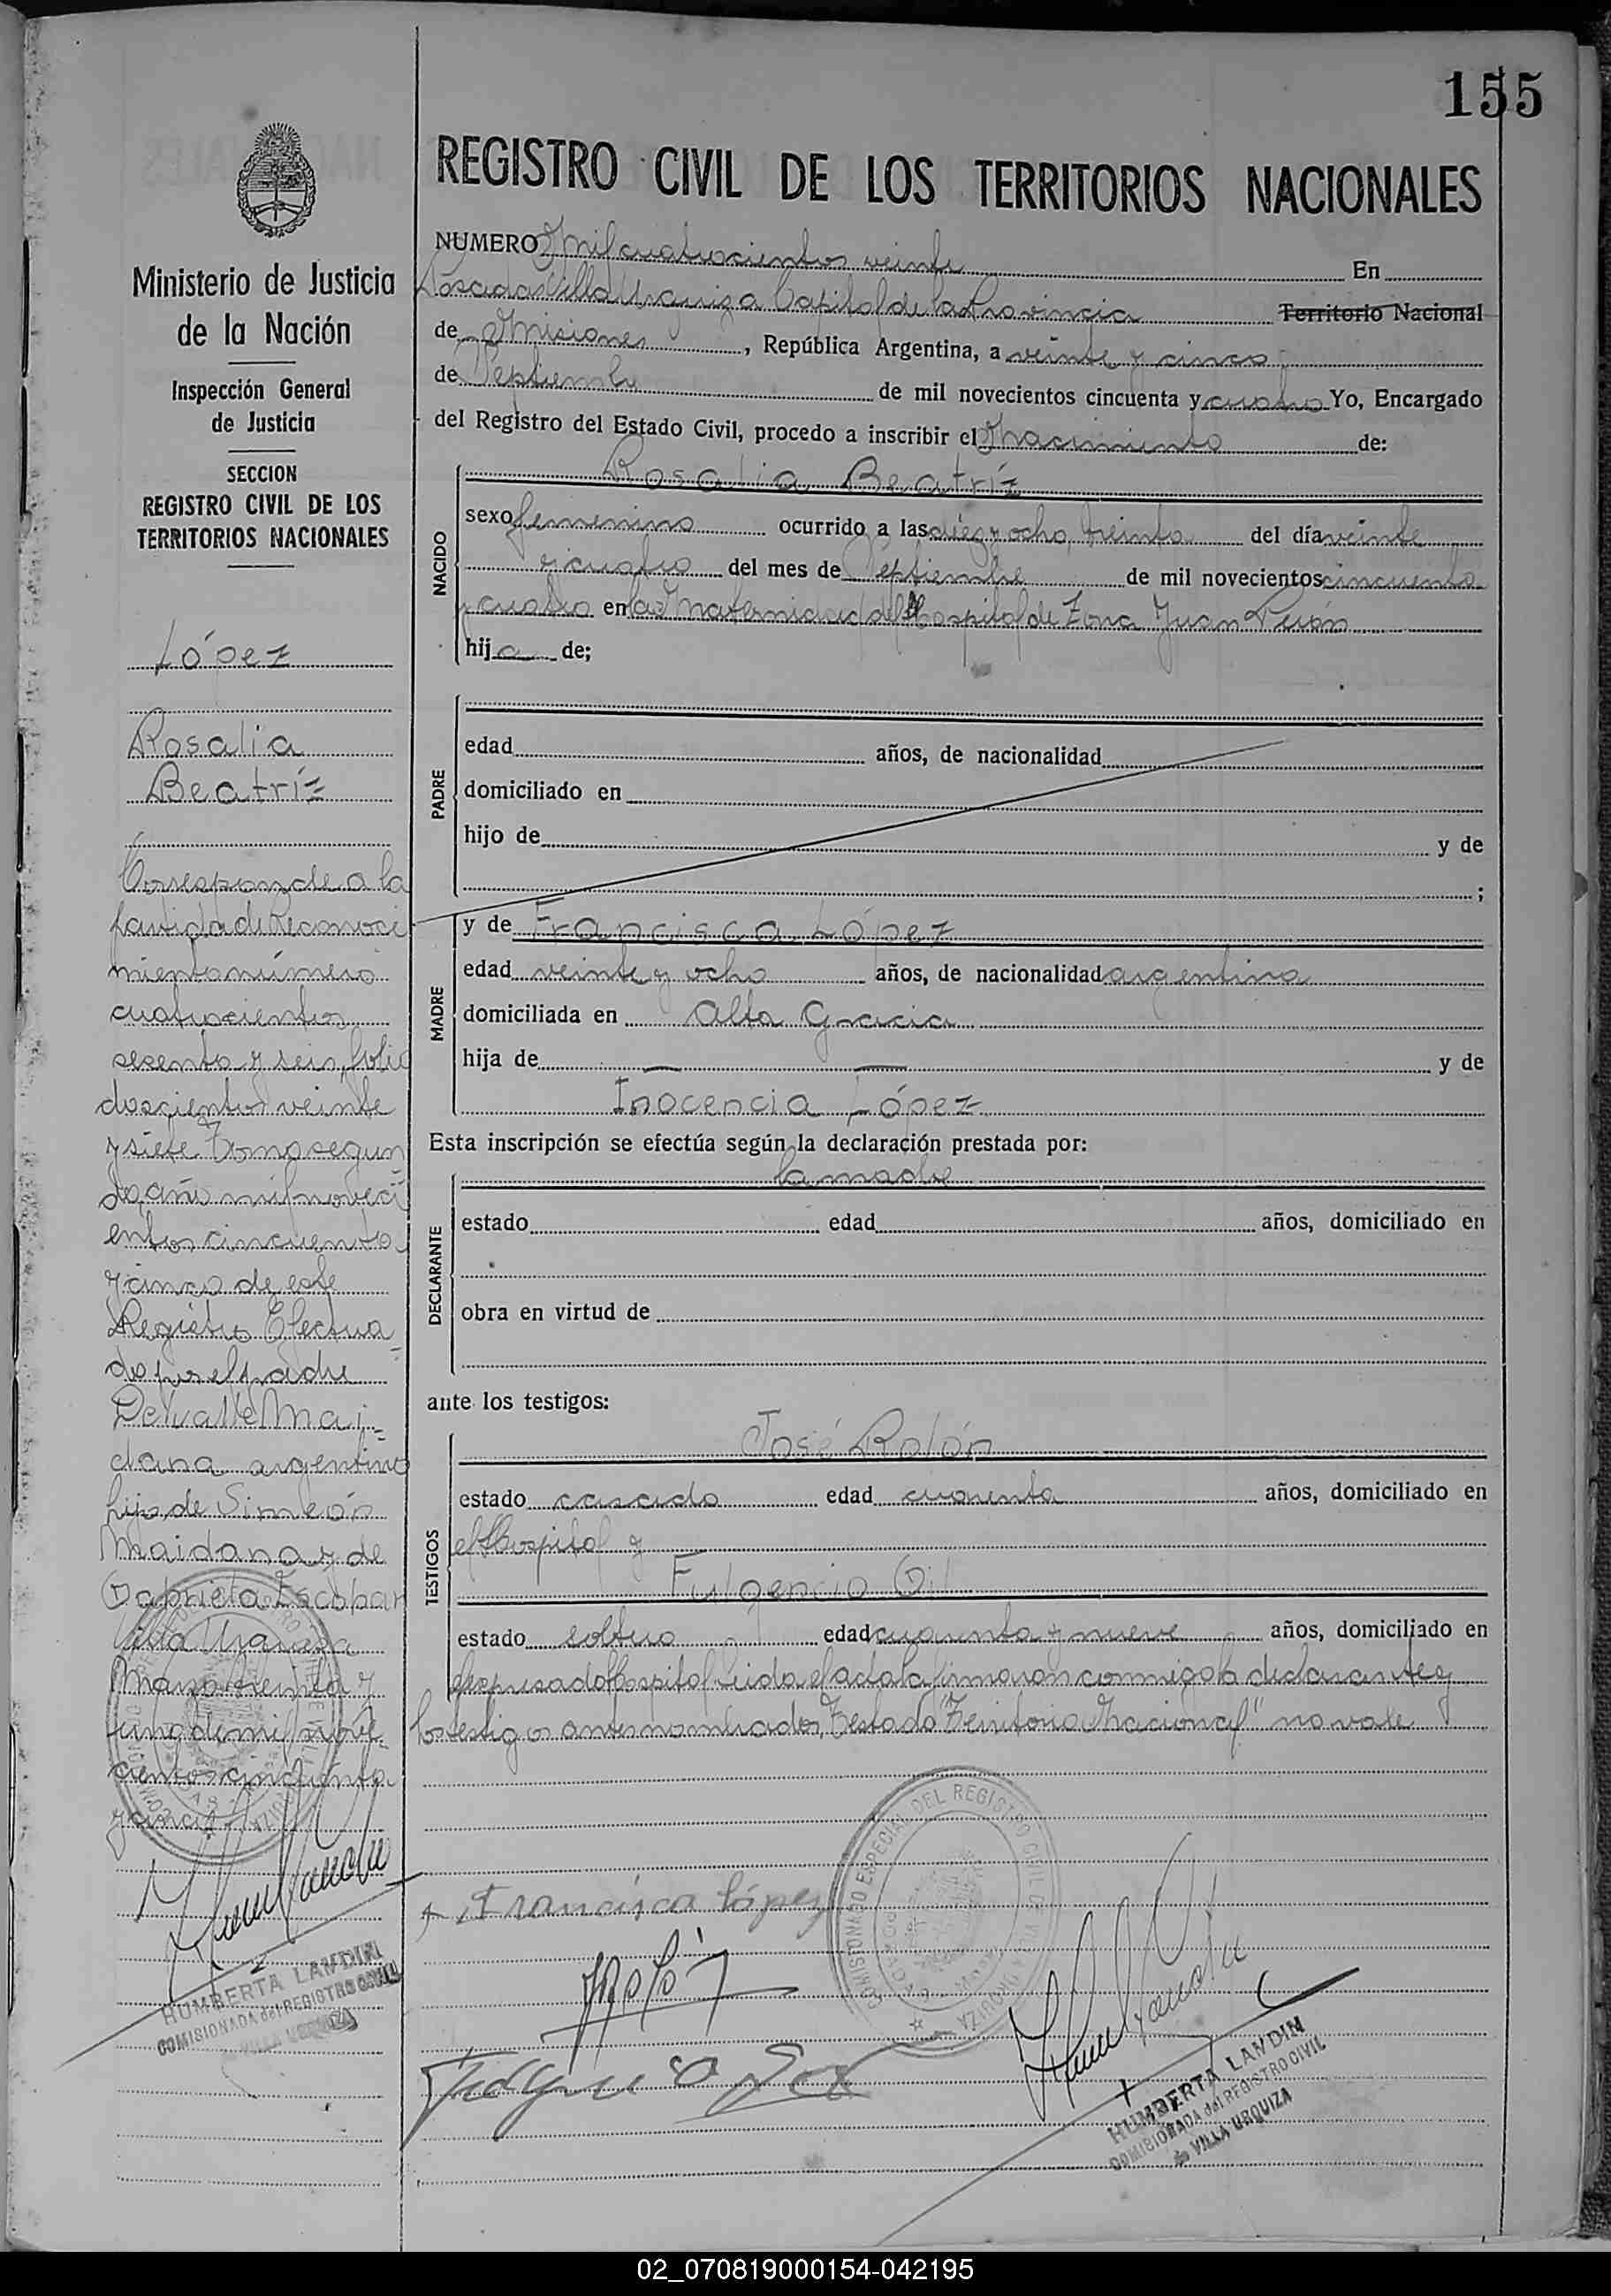 155
REGISTRO CIVIL DE LOS TERRITORIOS NACIONALES
Ministerio de Justicia
de la Nación
Inspección General
de Justicia
SECCION
REGISTRO CIVIL DE LOS
TERRITORIOS NACIONALES
López
Rosalia
Beatríz
Corresponde a la
partida de Reconoci
miento número
cuatrocientos
sesenta y seis, folio
doscientos veinte
y siete Tomo segun
do año mil noveci
entos cincuenta
y cinco de este
Registro Efectua
do por el padre
Delvalle Mai
dana argentino
hijo de Simeón
Maidana y de
Gabriela Escobar
Villa Urquiza
Marzo treinta y
uno de mil nove
cientos cincuenta
y cinco
HUMBERTA LANDIN
COMISIONADA del REGISTRO CIVIL
VILLA URQUIZA
NUMERO mil cuatrocientos veinte En
Posadas Villa Urquiza Capital de la Provincia Territorio Nacional
de Misiones, República Argentina, a veinte y cinco
de Septiembre de mil novecientos cincuenta y cuatro Yo, Encargado
del Registro del Estado Civil, procedo a inscribir el nacimiento de:
NACIDO
Rosalia Beatríz
sexo femenino ocurrido a las diez y ocho, treinta del día veinte
y cuatro del mes de Septiembre de mil novecientos cincuenta
y cuatro en la Maternidad del Hospital de Zona Juan Perón
hija de;
PADRE
edad años, de nacionalidad
domiciliado en
hijo de y de
;
MADRE
y de Francisca López
edad veinte y ocho años, de nacionalidad argentina
domiciliada en Alta Gracia
hija de — — y de
Inocencia López
Esta inscripción se efectúa según la declaración prestada por:
DECLARANTE
la madre
estado edad años, domiciliado en
obra en virtud de
ante los testigos:
TESTIGOS
José Rolón
estado casado edad cuarenta años, domiciliado en
el Hospital y
Fulgencio Gil
estado soltero edad cuarenta y nueve años, domiciliado en
el expresado Hospital Leida el acta la firmaron conmigo la declarante y
los testigos antes nombrados, Testado "Territorio Nacional" no vale
COMISIONADO ESPECIAL DEL REGISTRO CIVIL DE VILLA URQUIZA
Francisca López
HUMBERTA LANDIN
COMISIONADA del REGISTRO CIVIL
de VILLA URQUIZA
02_070819000154-042195